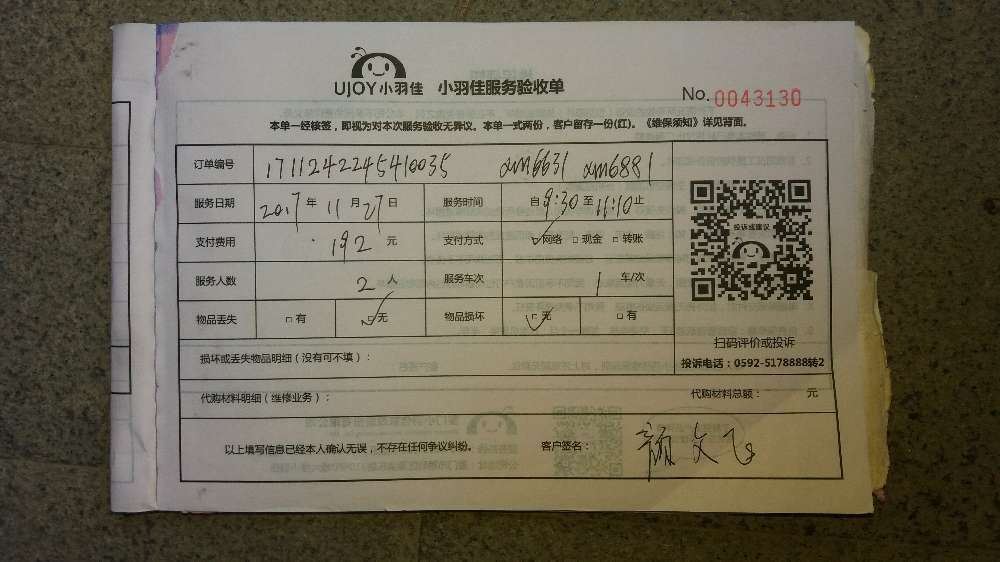 UJOY小羽佳 小羽佳服务验收单
No. 0043130
本单一经核签，即视为对本次服务验收无异议。本单一式两份，客户留存一份(红)。《维保须知》详见背面。
订单编号 1711242245410035 xm6631 xm6881
服务日期 2017年 11月27日 服务时间 自9:30至11:10止
支付费用 192元 支付方式 ☑网络 □现金 □转账
投诉或建议
服务人数 2人 服务车次 1车/次
物品丢失 □有 ☑无 物品损坏 ☑无 □有
扫码评价或投诉
投诉电话：0592-5178888转2
损坏或丢失物品明细（没有可不填）：
代购材料明细（维修业务）： 代购材料总额： 元
以上填写信息已经本人确认无误，不存在任何争议纠纷。 客户签名： 颜文飞